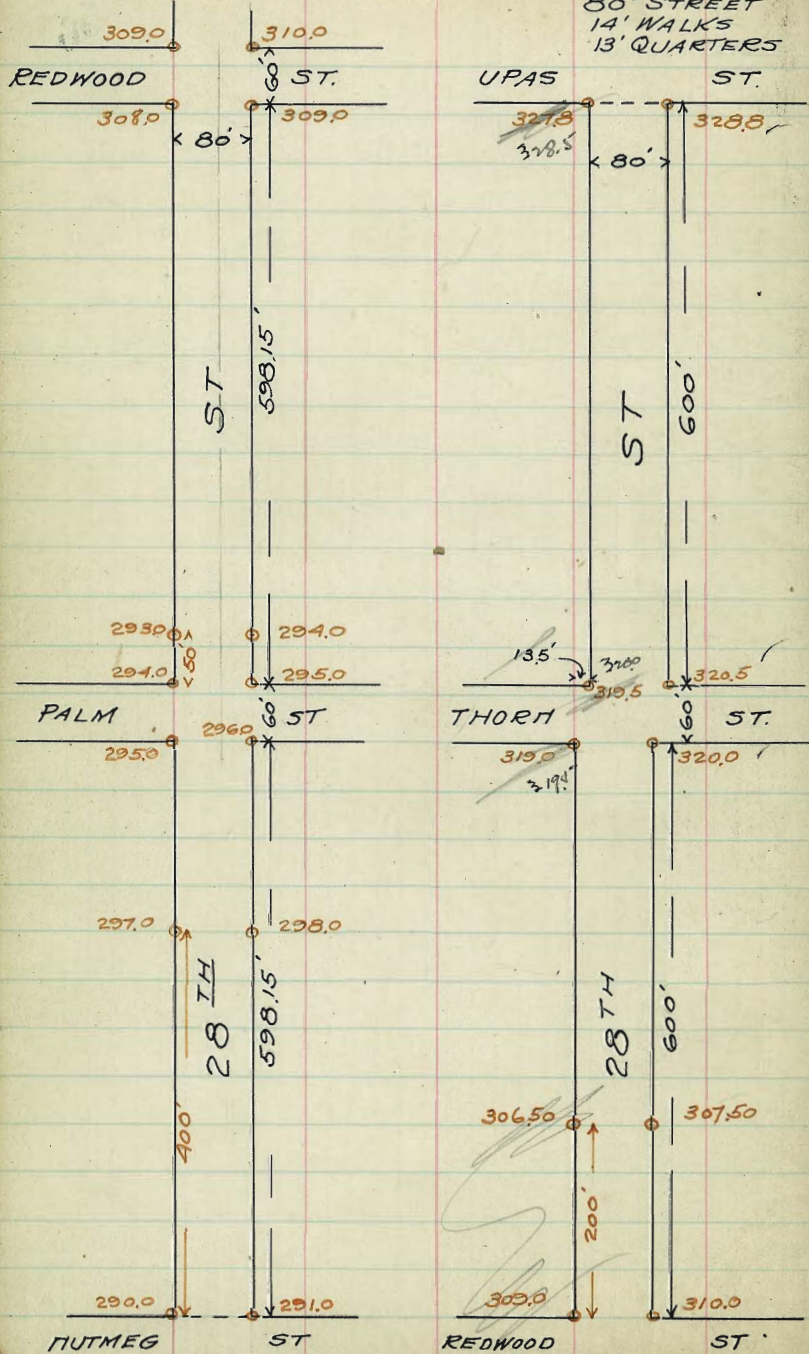 80' STREET
14' WALKS
13' QUARTERS
309.0 310.0
REDWOOD 60' ST.
308.0 309.0
80'
ST 598.15'
293.0 294.0
50'
294.0 295.0
PALM 60' ST
295.0 296.0
297.0 298.0
28TH 598.15'
400'
290.0 291.0
NUTMEG ST
UPAS ST.
327.8 328.8
328.5
80'
ST 600'
13.5' 320.0
319.5 320.5
THORN 60' ST.
319.0 320.0
28TH 600'
306.50 307.50
200'
309.0 310.0
REDWOOD ST